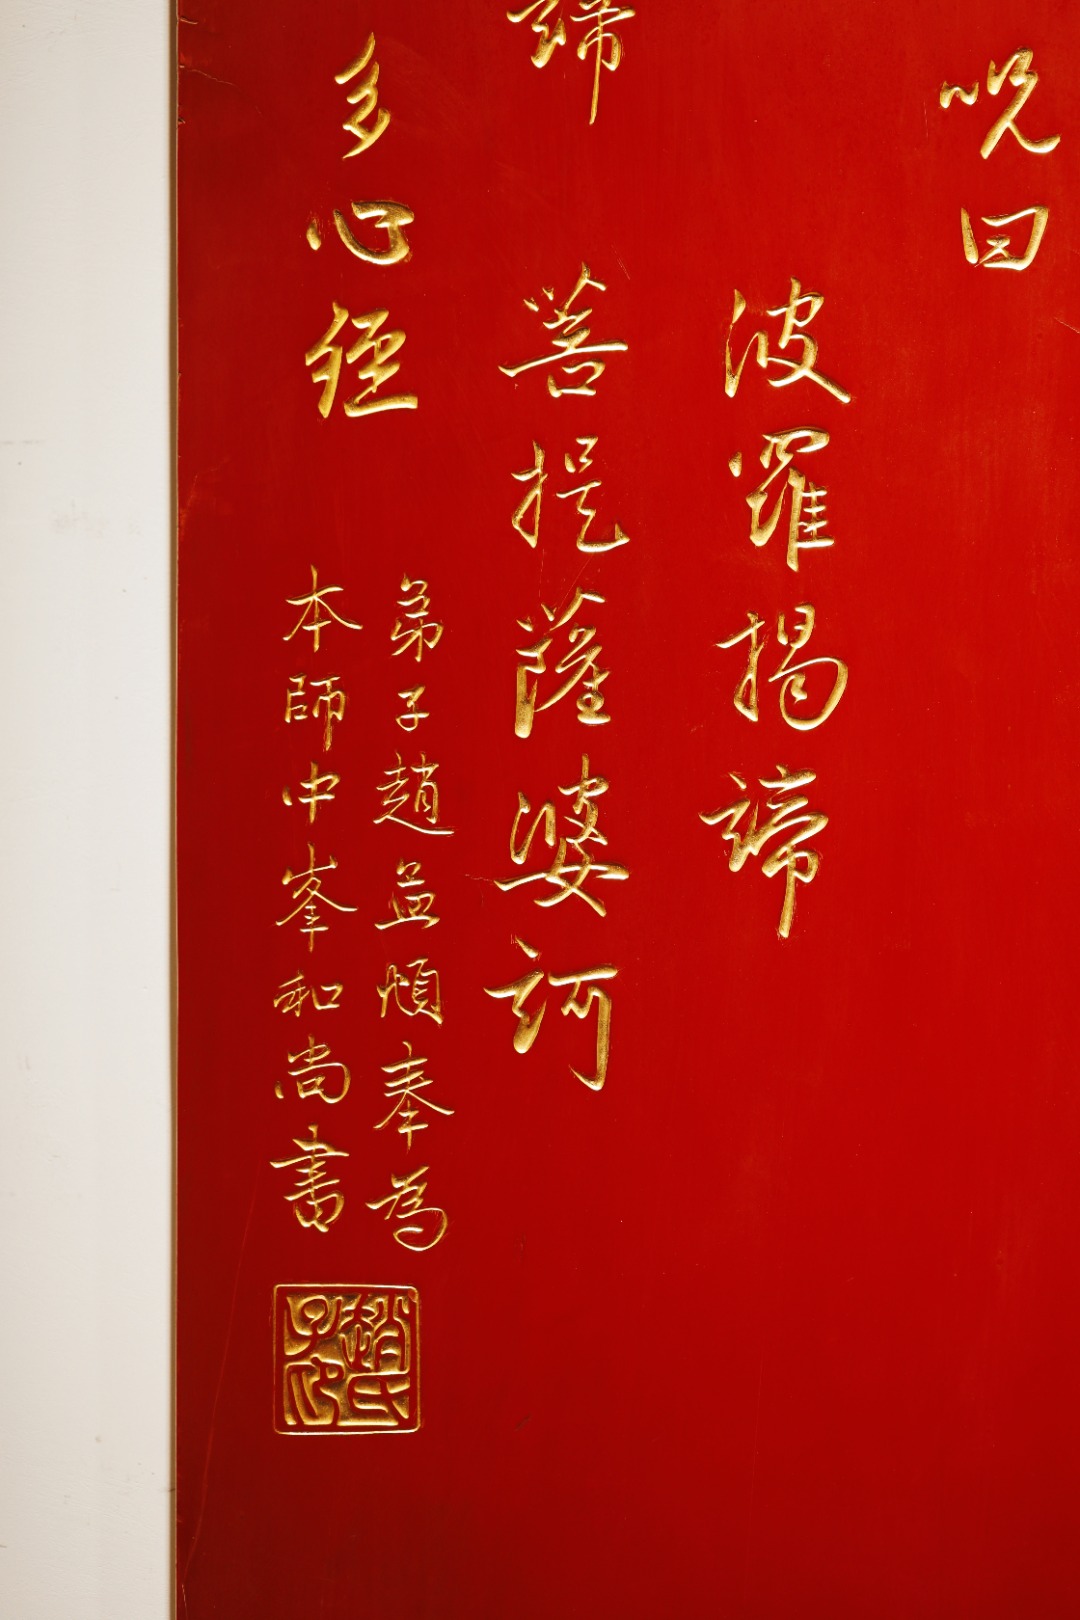 呪曰
波羅揭諦
諦 菩提薩婆訶
多心經
弟子趙孟頫奉為
本師中峯和尚書
趙氏子昂